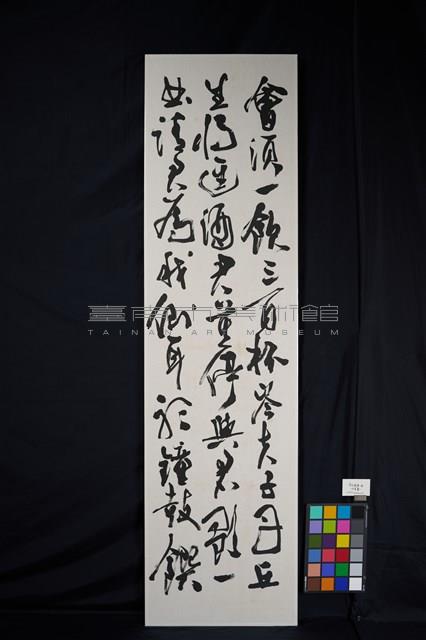 會須一飲三百杯岑夫子丹丘
生將進酒君莫停與君歌一
曲請君為我側耳聽鐘鼓饌
臺南市美術館
TAINAN ART MUSEUM